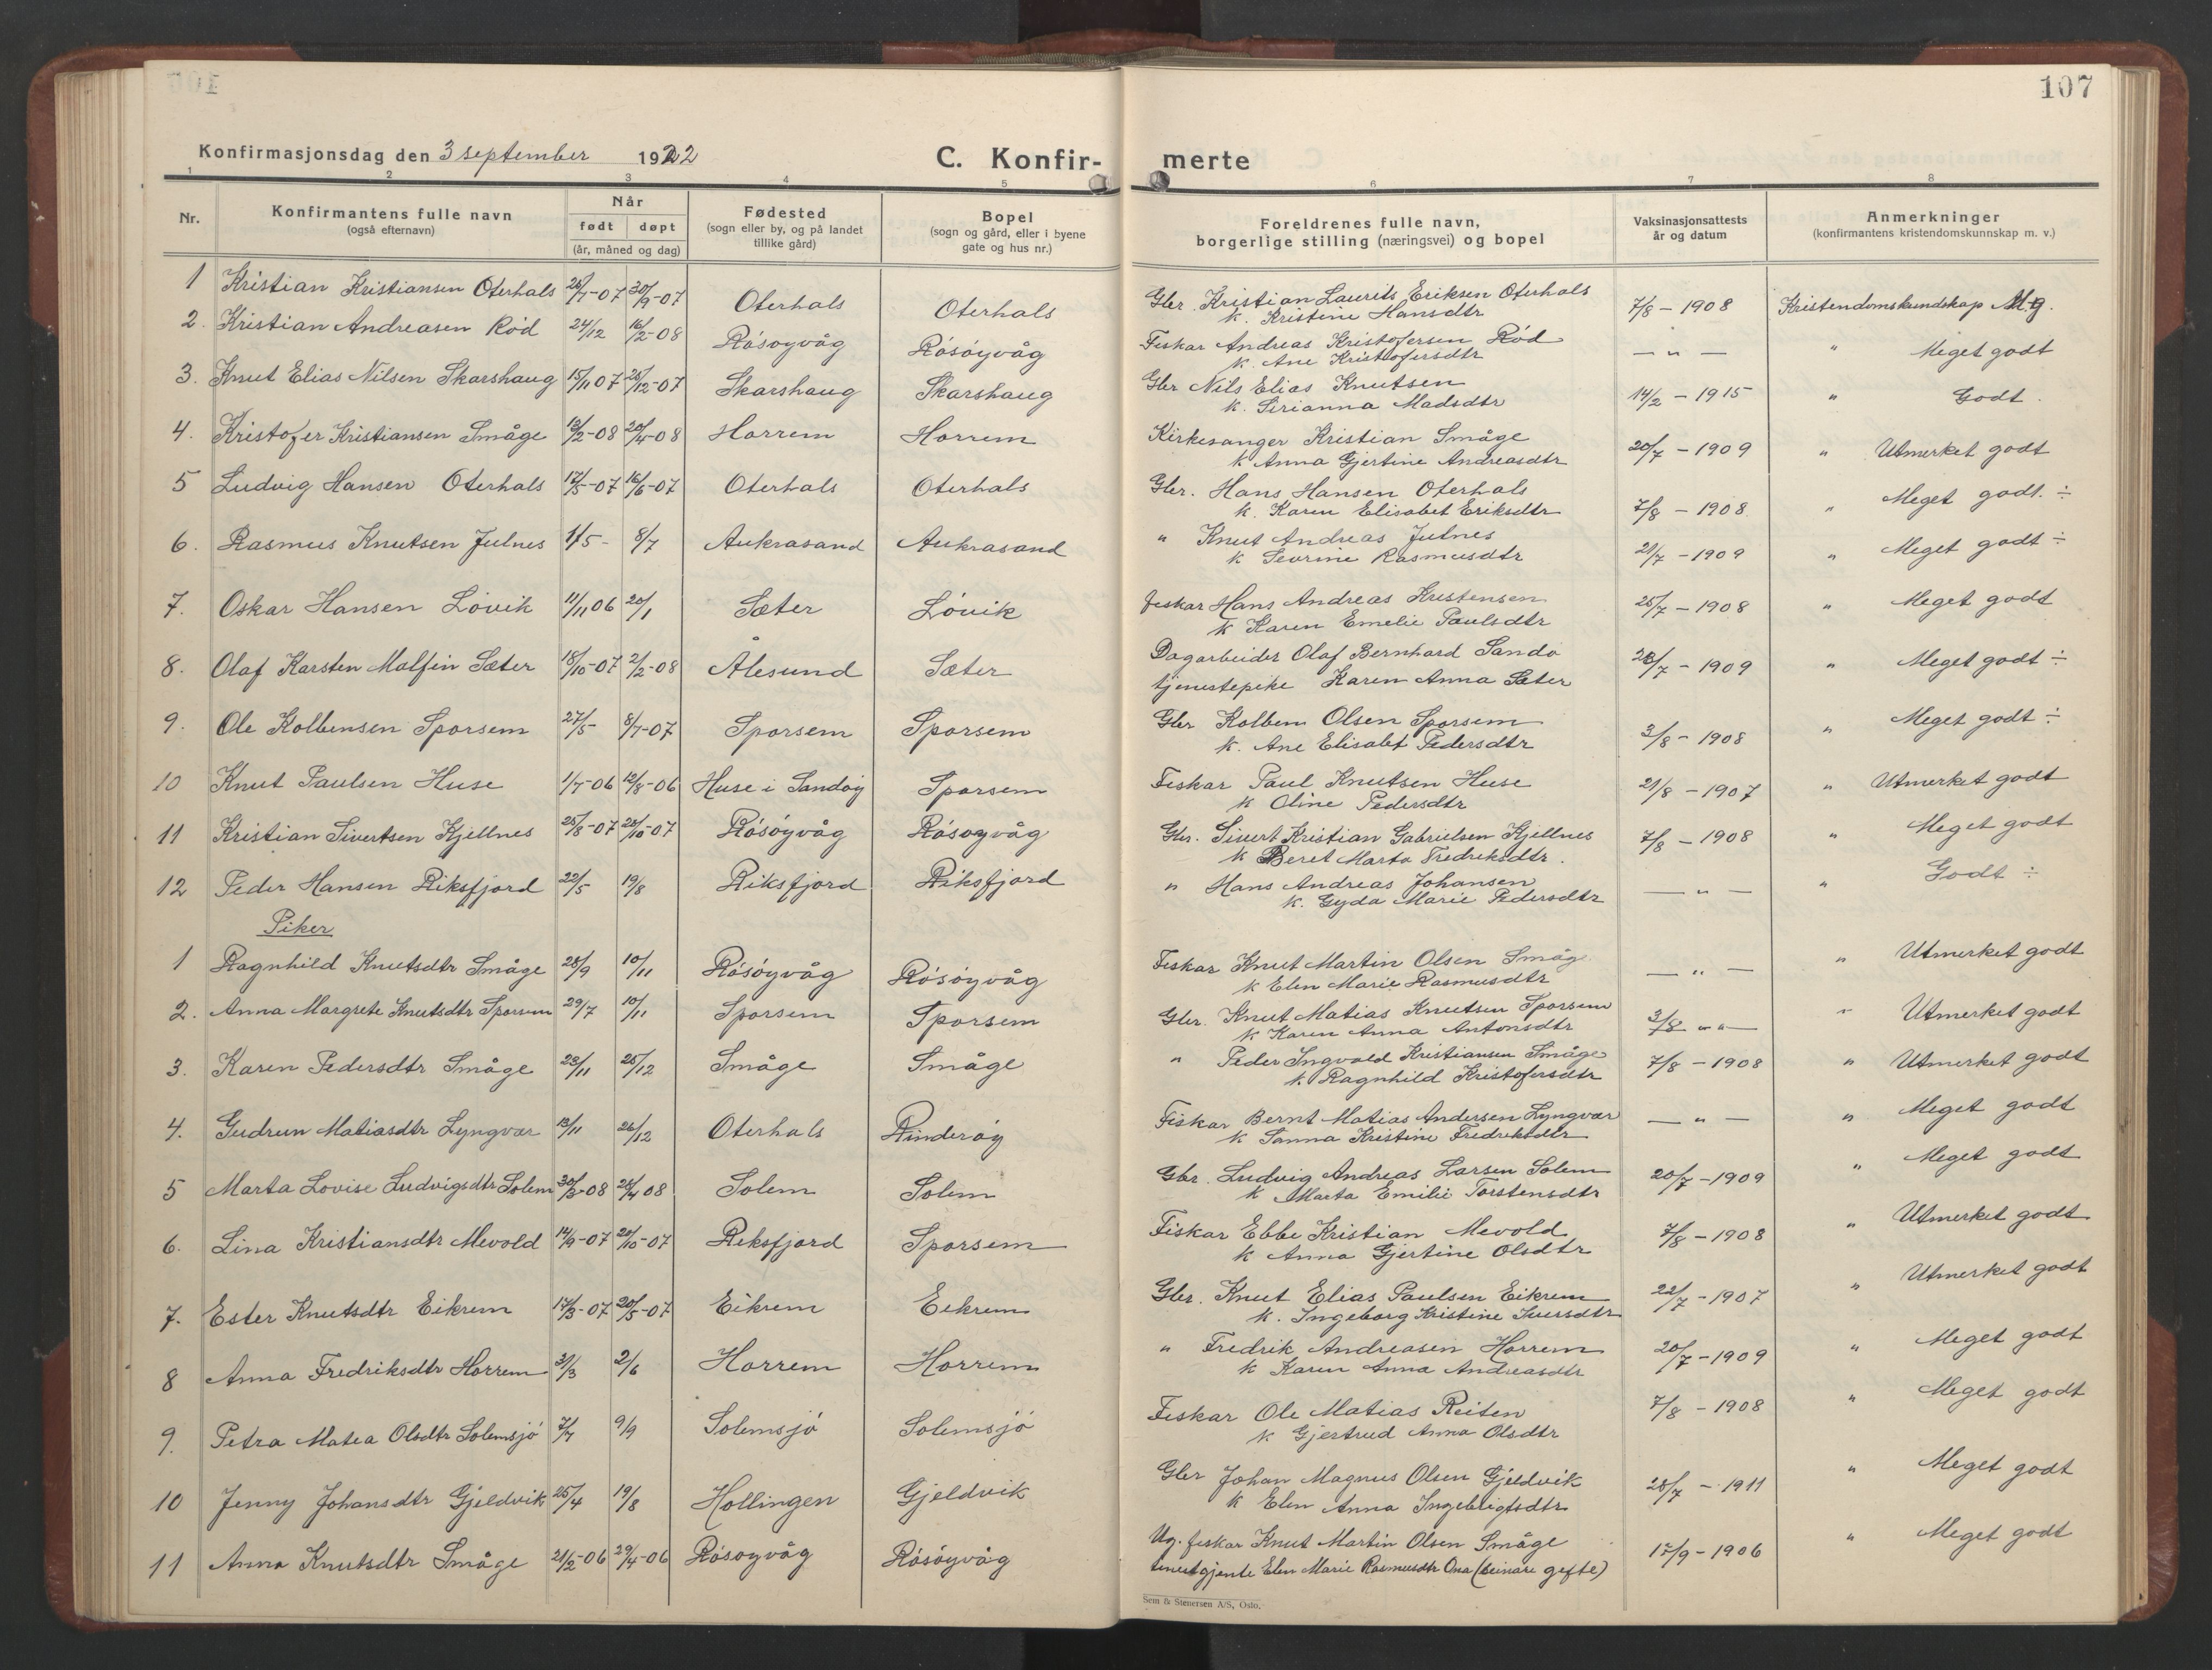 107
Konfirmasjonsdag den 3 september 1922
C. Konfir- merte
1 2 3 4 5 6 7 8
Nr. Konfirmantens fulle navn (også efternavn) Når født døpt (år, måned og dag) Fødested (sogn eller by, og på landet tillike gård) Bopel (sogn og gård, eller i byene gate og hus nr.) Foreldrenes fulle navn, borgerlige stilling (næringsvei) og bopel Vaksinasjonsattests år og datum Anmerkninger (konfirmantens kristendomskunnskap m. v.)
1 Kristian Kristiansen Oterhals 26/7-07 30/9-07 Oterhals Oterhals Gbr. Kristian Laurits Eriksen Oterhals
k. Kristine Hansdtr 7/8 - 1908 Kristendomskundskap M.g.
2. Kristian Andreasen Rød 24/12 16/2-08 Røsøyvåg Røsøyvåg Fiskar Andreas Kristofersen Rød
k. Ane Kristofersdtr — " — " Meget godt
3. Knut Elias Nilsen Skarshaug 15/11 07 26/12-07 Skarshaug Skarshaug Gbr Nils Elias Knutsen
k. Sirianna Madsdtr 14/2 - 1915 " Godt.
4. Kristofer Kristiansen Småge 13/2-08 20/4-08 Horrem Horrem Kirkesanger Kristian Småge
k Anna Gjertine Andreasdtr 20/7 - 1909 " Utmerket godt
5 Ludvig Hansen Oterhals 17/5-07 16/6-07 Oterhals Oterhals Gbr. Hans Hansen Oterhals
k. Karen Elisabet Eriksdtr 7/8 - 1908. " Meget godt. ÷
6. Rasmus Knutsen Julnes 1/5- 8/7 Aukrasand Aukrasand " Knut Andreas Julnes
k Sevrine Rasmusdtr 21/7 - 1909 " Meget godt ÷
7. Oskar Hansen Løvik 11/11 06 20/1 Sæter Løvik fiskar Hans Andreas Kristensen
k Karen Emelie Paulsdtr 25/7 - 1908 " Meget godt
8. Olaf Karsten Malfin Sæter 18/10-07 2/2-08 Ålesund Sæter Dagarbeider Olaf Bernhard Sandø
tjenestepike Karen Anna Sæter 28/7 - 1909 " Meget godt ÷
9. Ole Kolbensen Sporsem 27/5- 8/7-07 Sporsem Sporsem Gbr Kolben Olsen Sporsem
k. Ane Elisabet Pedersdtr 3/8 - 1908 " Meget godt ÷
10 Knut Paulsen Huse 1/7-06 12/8-06 Huse i Sandøy Sporsem Fiskar Paul Knutsen Huse
k Oline Pedersdtr 21/8 - 1907 " Utmerket godt
11 Kristian Sivertsen Kjellnes 25/8-07 20/10-07 Røsøyvåg Røsøyvåg Gbr. Sivert Kristian Gabrielsen Kjellnes
k Beret Marta Fredriksdtr. 7/8 - 1908 " Meget godt
12 Peder Hansen Riksfjord 22/5 19/8 Riksfjord Riksfjord " Hans Andreas Johansen
k. Gyda Marie Pedersdtr — " — " Godt ÷
Piker
1 Ragnhild Knutsdtr Småge 28/9 10/11 Røsøyvåg Røsøyvåg Fiskar Knut Martin Olsen Småge
k Elen Marie Rasmusdtr — " — " Utmerket godt
2. Anna Margrete Knutsdtr Sporsem 29/7 10/11 Sporsem Sporsem Gbr. Knut Matias Knutsen Sporsem
k Karen Anna Antonsdtr 3/8 — " — " Utmerket godt
3. Karen Pedersdtr Småge 23/11 25/12 Småge Småge " Peder Ingvald Kristiansen Småge
k. Ragnhild Kristofersdtr 7/8 - 1908 " Utmerket godt
4. Gudrun Matiasdtr Lyngvær 13/11 26/12 Oterhals Rinderøy Fiskar Bernt Matias Andersen Lyngvær
k Sanna Kristine Fredriksdtr — " — " Meget godt
5 Marta Lovise Ludvigsdtr Solem 30/3-08 28/4 08 Solem Solem Gbr. Ludvig Andreas Larsen Solem
k Marta Emilie Torstensdtr 20/7 - 1909 " Meget godt
6. Lina Kristiansdtr Mevold 14/9-07 20/10-07 Reksfjord Sporsem Fiskar Ebbe Kristian Mevold
k Anna Gjertine Olsdtr 7/8 - 1908 " Utmerket godt
7. Ester Knutsdtr Eikrem 17/3-07 20/5-07 Eikrem Eikrem Gbr. Knut Elias Paulsen Eikrem
k. Ingeborg Kristine Iversdtr 22/7 - 1907 " Utmerket godt
8 Anna Fredriksdtr Horrem 31/3 2/6 Horrem Horrem " Fredrik Andreasen Horrem
k Karen Anna Andreasdtr 20/7 - 1909 " Meget godt
9. Petra Matea Olsdtr Solemsjø 7/7 9/9 Solemsjø Solemsjø Fiskar Ole Matias Reiten
k Gjertrud Anna Olsdtr 7/8 - 1908 " Meget godt
10 Jenny Johansdtr Gjeldvik 25/4 19/8 Hollingen Gjeldvik Gbr Johan Magnus Olsen Gjeldvik
k Elen Anna Ingebrigtsdtr 28/7 - 1911 " Meget godt
11 Anna Knutsdtr Småge 21/2-06 29/4-06 Røsøyvåg Røsøyvåg Ug. fiskar Knut Martin Olsen Småge
tenestgjente Elen Marie Rasmusdtr Ona (seinare gifte) 17/9 - 1906 " Meget godt
Sem & Stenersen A/S, Oslo.